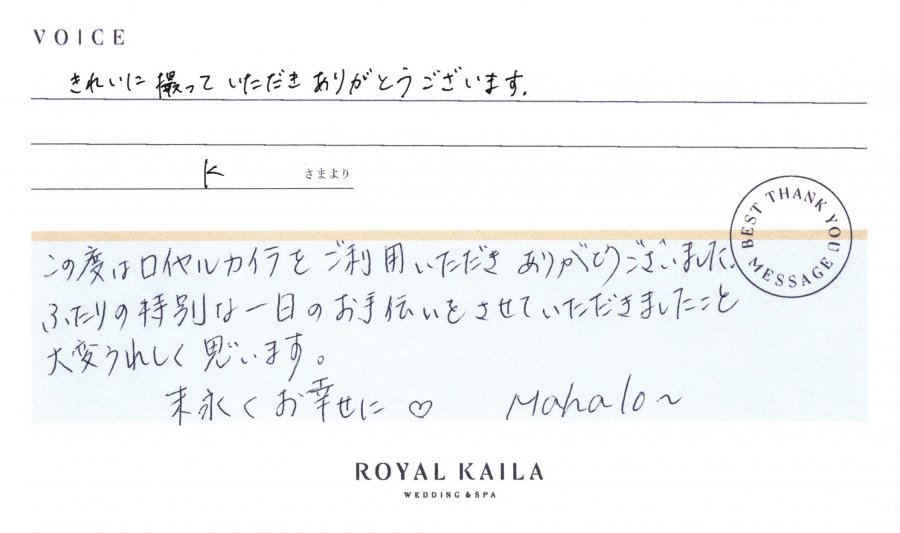 VOICE
きれいに撮っていただきありがとうございます。
K さまより
BEST THANK YOU MESSAGE
この度はロイヤルカイラをご利用いただきありがとうございました。
ふたりの特別な一日のお手伝いをさせていただきましたこと
大変うれしく思います。
末永くお幸せに♡ Mahalo~
ROYAL KAILA
WEDDING & SPA